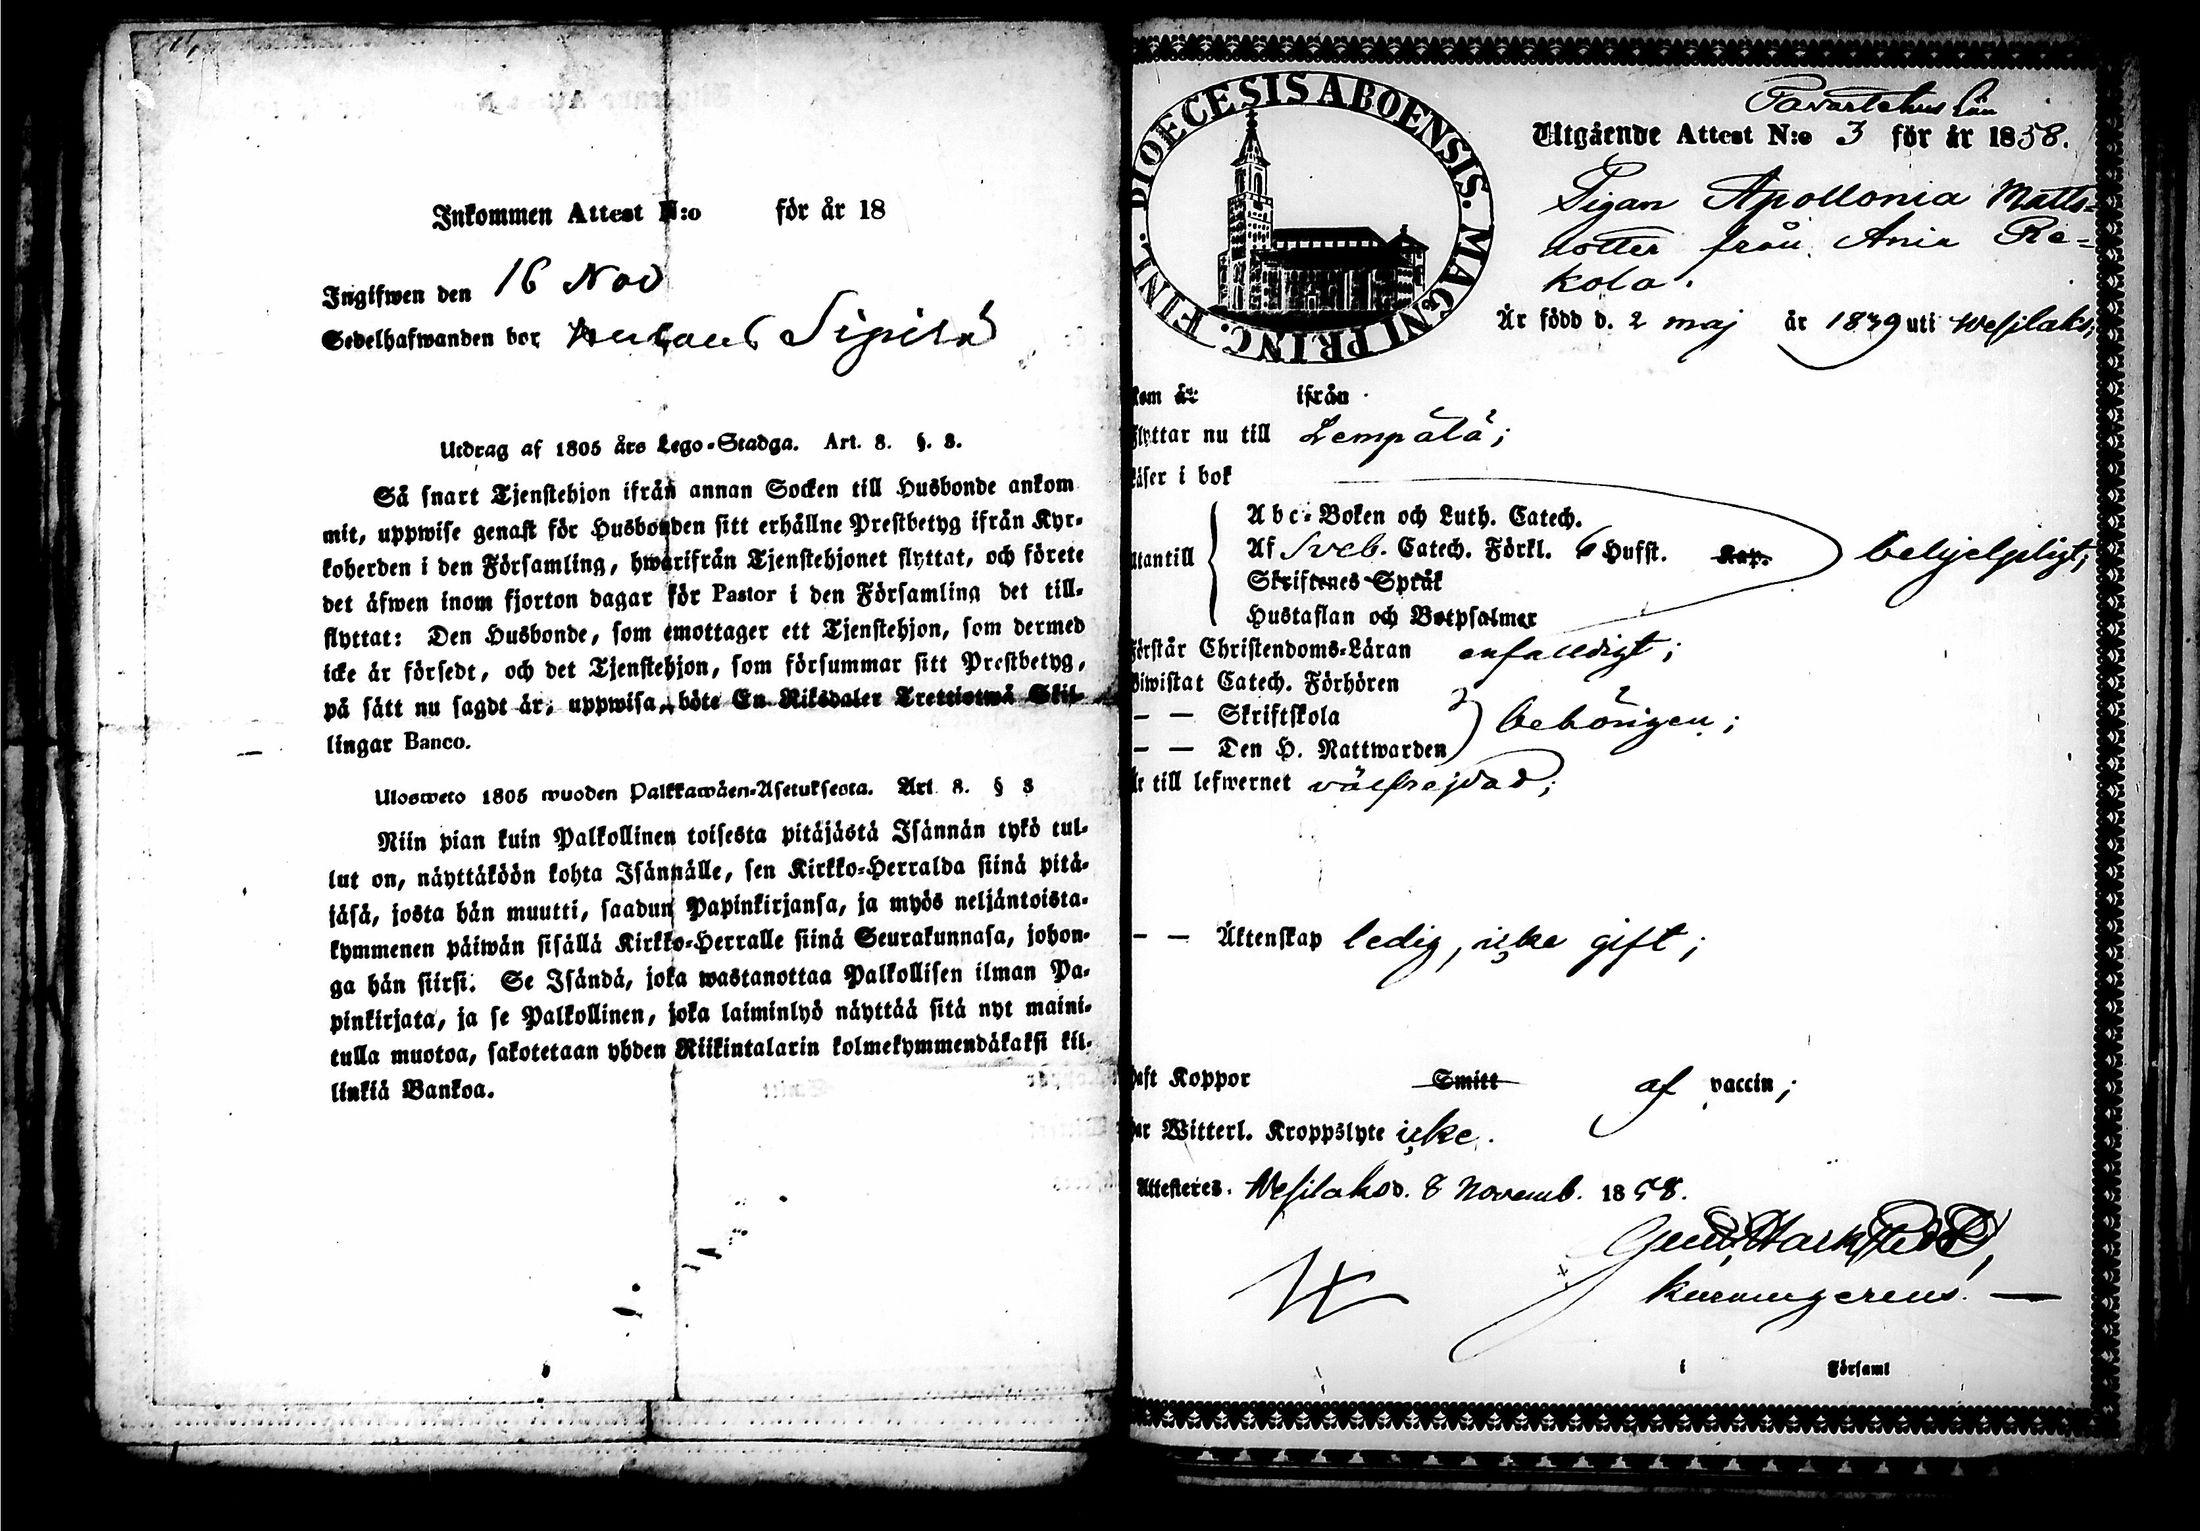 Inkommen Attest N:o för år 18
Ingifwen den 16 Nov
Sedelhafwanden bor Sipilä
Utdrag af 1805 års Lego-Stadga. Art. 8. §. 3.
Så snart Tjenstehjon ifrån annan Socken till Husbonde ankom
mit, uppwise genast för Husbonden sitt erhållne Prestbetyg ifrån Kyr-
koherden i den Församling, hwarifrån Tjenstehjonet flyttat, och förete
det äfwen inom fjorton dagar för Pastor i den Församling det till-
flyttat: Den Husbonde, som emottager ett Tjenstehjon, som dermed
icke är försedt, och det Tjenstehjon, som försummar sitt Prestbetyg,
på sätt nu sagdt är, uppwisa, böte En Riksdaler Trettiotwå Skil-
lingar Banco.
Ulosweto 1805 wuoden Palkkawäen-Asetuksesta. Art 8. § 3
Niin pian kuin Palkollinen toisesta pitäjästä Isännän tykö tul-
lut on, näyttäköön kohta Isännälle, sen Kirkko-Herralda siinä pitä-
jäsä, josta hän muutti, saadun Papinkirjansa, ja myös neljäntoista-
kymmenen päiwän sisällä Kirkko-Herralle siinä Seurakunnasa, johon-
ga hän siirsi. Se Isändä, joka wastanottaa Palkollisen ilman Pa-
pinkirjata, ja se Palkollinen, joka laiminlyö näyttää sitä nyt maini-
tulla muotoa, sakotetaan yhden Riikintalarin kolmekymmendäkaksi kil-
linkiä Bankoa.
FINL. DIOECESIS ABOENSIS. MAGNI PRINC.
Tavastehus Län
Utgående Attest N:o 3 för år 1858.
Pigan Apollonia Matts-
dotter från Ania Re-
kola.
Är född d. 2 maj år 1839 uti Wesilaks,
kom år ifrån
flyttar nu till Lempälä;
läser i bok
Abc-Boken och Luth. Catech.
utantill Af Sveb. Catech. Förkl. 6 Hufst. Kap. behjelpligt;
Skriftenes Språk
Hustaflan och Botpsalmer
förstår Christendoms-Läran enfalldigt;
biwistat Catech. Förhören
— — Skriftskola behörigen;
— — Den H. Nattwarden
är till lefwernet välfrejdad;
— — Äktenskap ledig, icke gift;
haft Koppor Smitt af vaccin;
har Witterl. Kroppslyte icke.
Attesteres. Wesilaks d. 8 Novemb. 1858.
i Församl